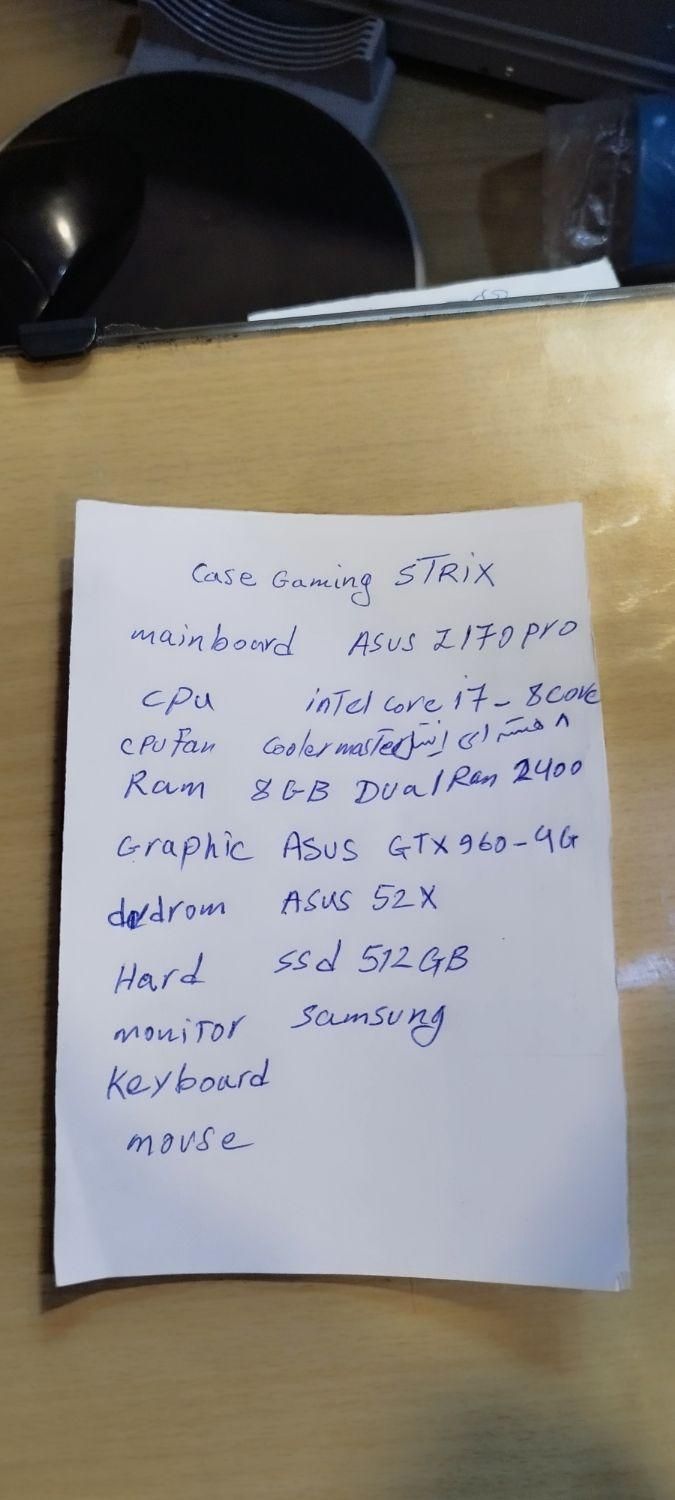 Case Gaming STRIX
mainboard ASUS Z170 pro
CPU intel core i7 - 8 core
CPU Fan cooler master ۸ هسته ای اینتل
Ram 8 GB Dual Ram 2400
Graphic ASUS GTX 960-4G
dvdrom ASUS 52X
Hard ssd 512 GB
monitor Samsung
Keyboard
mouse